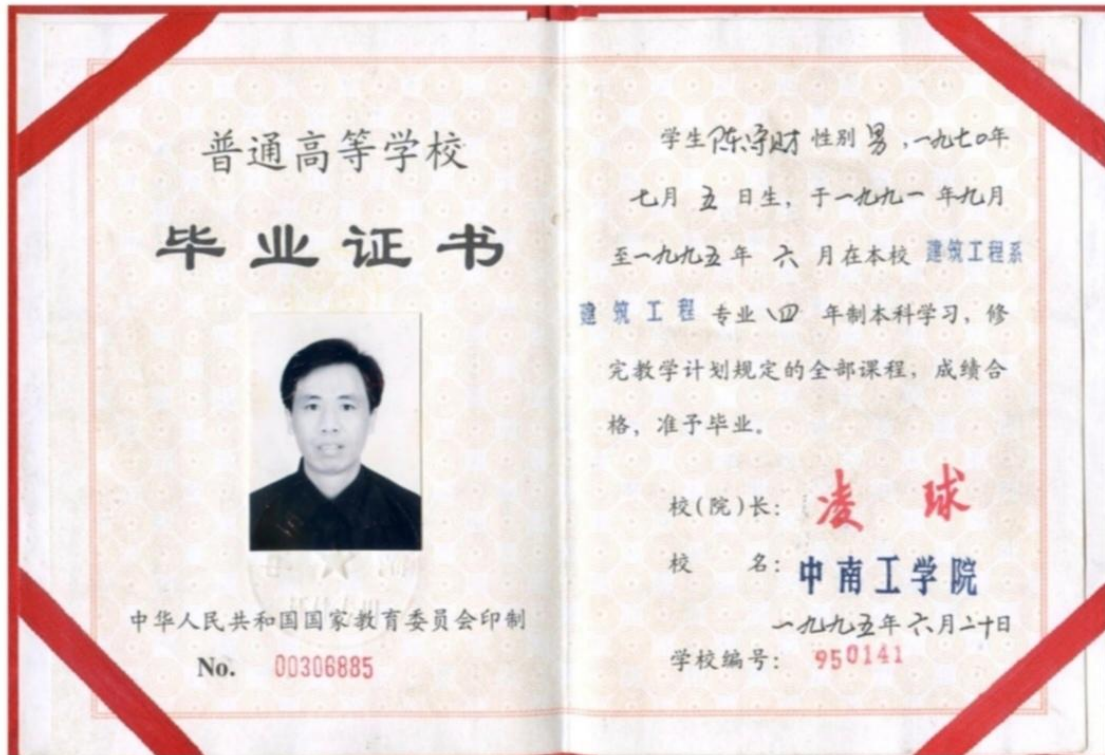 普通高等学校
毕业证书
中华人民共和国国家教育委员会印制
No. 00306885
学生陈守财性别男,一九七〇年
七月五日生,于一九九一年九月
至一九九五年六月在本校建筑工程系
建筑工程专业四年制本科学习,修
完教学计划规定的全部课程,成绩合
格,准予毕业。
校(院)长:凌球
校名:中南工学院
一九九五年六月二十日
学校编号:950141